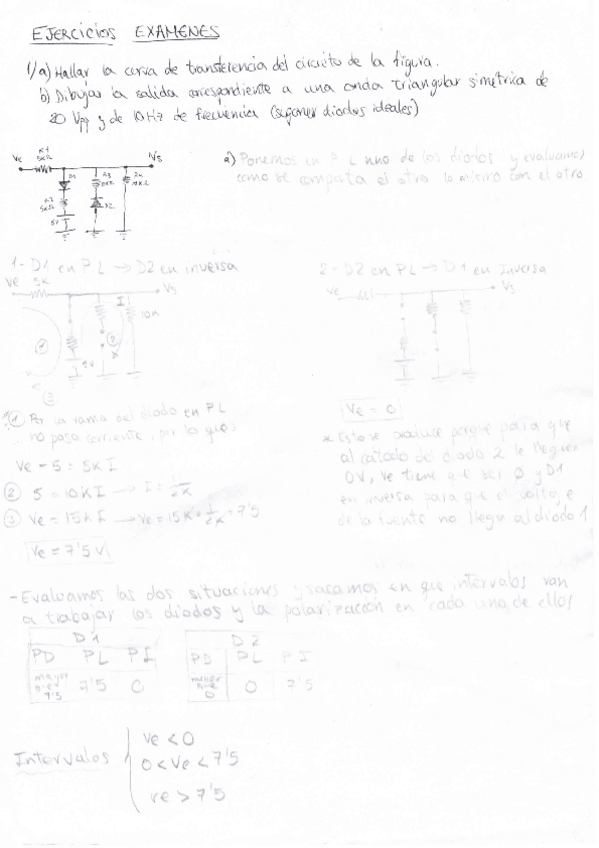 EJERCICIOS EXAMENES
1/a) Hallar la curva de transferencia del circuito de la figura.
b) Dibujar la salida correspondiente a una onda triangular simétrica de
20 Vpp y de 10Hz de frecuencia (suponer diodos ideales)
Ve R1 5kΩ Vs
D1 R3 10kΩ
D2
5V
a) Ponemos en PL uno de los diodos y evaluamos
como se comporta el otro lo mismo con el otro
1- D1 en PL → D2 en inversa
Ve 5k Vs
I 10k
1 2
5V
3
2- D2 en PL → D1 en Inversa
Ve Vs
1 Por la rama del diodo en PL
no pasa corriente, por lo que:
Ve - 5 = 5k I
2 5 = 10k I → I = 1/2k
3 Ve = 15k I → Ve = 15k * 1/2k = 7'5
Ve = 7'5 V
Ve = 0
* Esto se produce porque para que
al cátodo del diodo 2 le lleguen
0V, Ve tiene que ser 0 y D1
en inversa para que el voltaje
de la fuente no llega al diodo 1
- Evaluamos las dos situaciones y sacamos en que intervalos van
a trabajar los diodos y la polarización en cada uno de ellos
D1
PD PL PI
mayor
7'5 7'5 0
D2
PD PL PI
menor
0 0 7'5
Intervalos
Ve < 0
0 < Ve < 7'5
Ve > 7'5